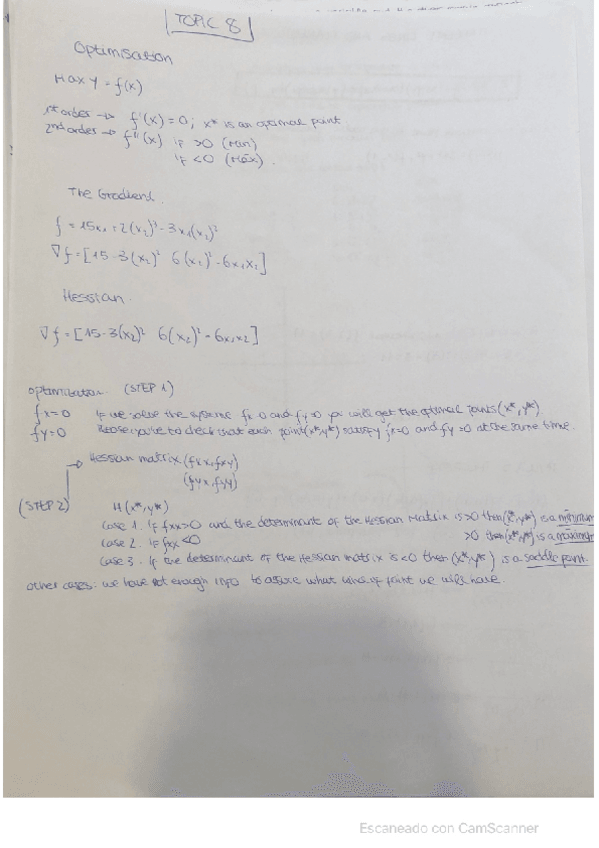 TOPIC 8
Optimisation
Max y = f(x)
1st order → f'(x) = 0; x* is an optimal point.
2nd order → f''(x) if >0 (Min)
if <0 (Max).
The Gradient.
f = 15x₁ + 2(x₂)³ - 3x₁(x₂)²
∇f = [15 - 3(x₂)² 6(x₂)² - 6x₁x₂]
Hessian.
∇f = [15 - 3(x₂)² 6(x₂)² - 6x₁x₂]
optimisation. (STEP 1)
fx=0 If we solve the systems fx=0 and fy=0 you will get the optimal points (x*, y*)
fy=0 you're to check that each point (x*, y*) satisfy fx=0 and fy=0 at the same time.
→ Hessian matrix (fxx, fxy)
(fyx, fyy)
(STEP 2) H(x*, y*)
Case 1. if fxx>0 and the determinant of the Hessian Matrix is >0 then (x*, y*) is a minimum
Case 2. if fxx<0 >0 then (x*, y*) is a
Case 3. if the determinant of the Hessian matrix is <0 then (x*, y*) is a saddle point.
other cases: we have not enough info to assure what kind of point we will have.
Escaneado con CamScanner